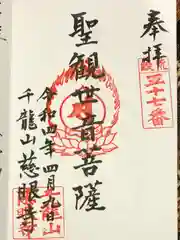 奉拝
三十七番
聖観世音菩薩
令和四年四月九日
千龍山慈眼寺